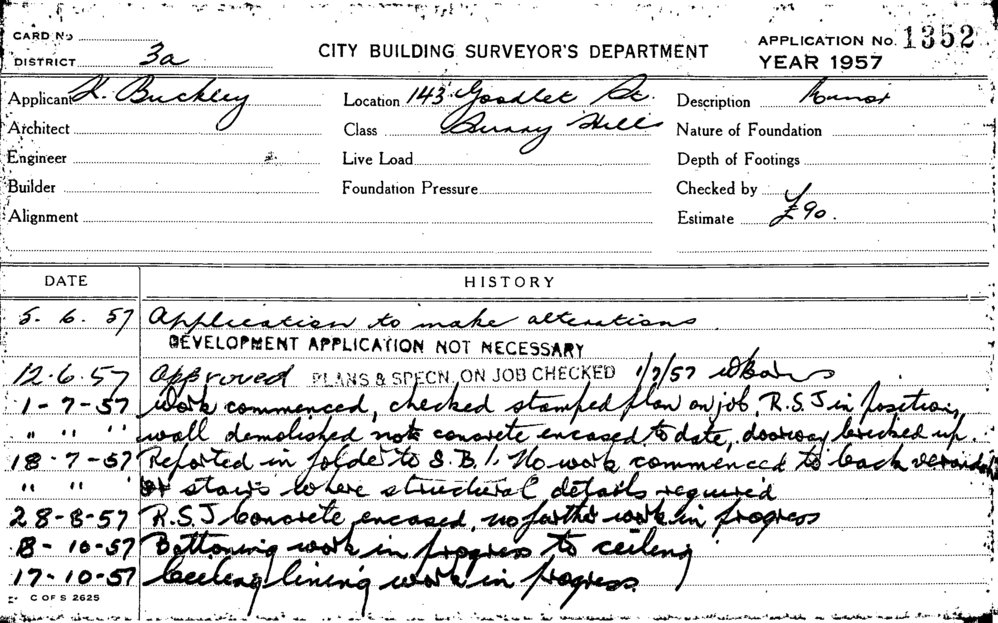 CARD No
DISTRICT 3a
CITY BUILDING SURVEYOR'S DEPARTMENT
APPLICATION No. 1352
YEAR 1957
Applicant K. Buckley
Location 143 Goodlet St.
Description Minor
Architect
Class Surry Hills
Nature of Foundation
Engineer
Live Load
Depth of Footings
Builder
Foundation Pressure
Checked by
Alignment
Estimate £90.
DATE HISTORY
5. 6. 57 Application to make alterations.
DEVELOPMENT APPLICATION NOT NECESSARY
12.6.57 Approved PLANS & SPECN. ON JOB CHECKED 1/7/57
1-7-57 Work commenced, checked stamped plan on job, R.S.J in position,
" " " wall demolished not concrete encased to date, doorway bricked up.
18-7-57 Reported in folder to S.B.I. No work commenced to back verandah
" " or stairs where structural details required
28-8-57 R.S.J Concrete encased, no further work in progress
8-10-57 Battening work in progress to ceiling
17-10-57 Ceiling lining work in progress.
C OF S 2625